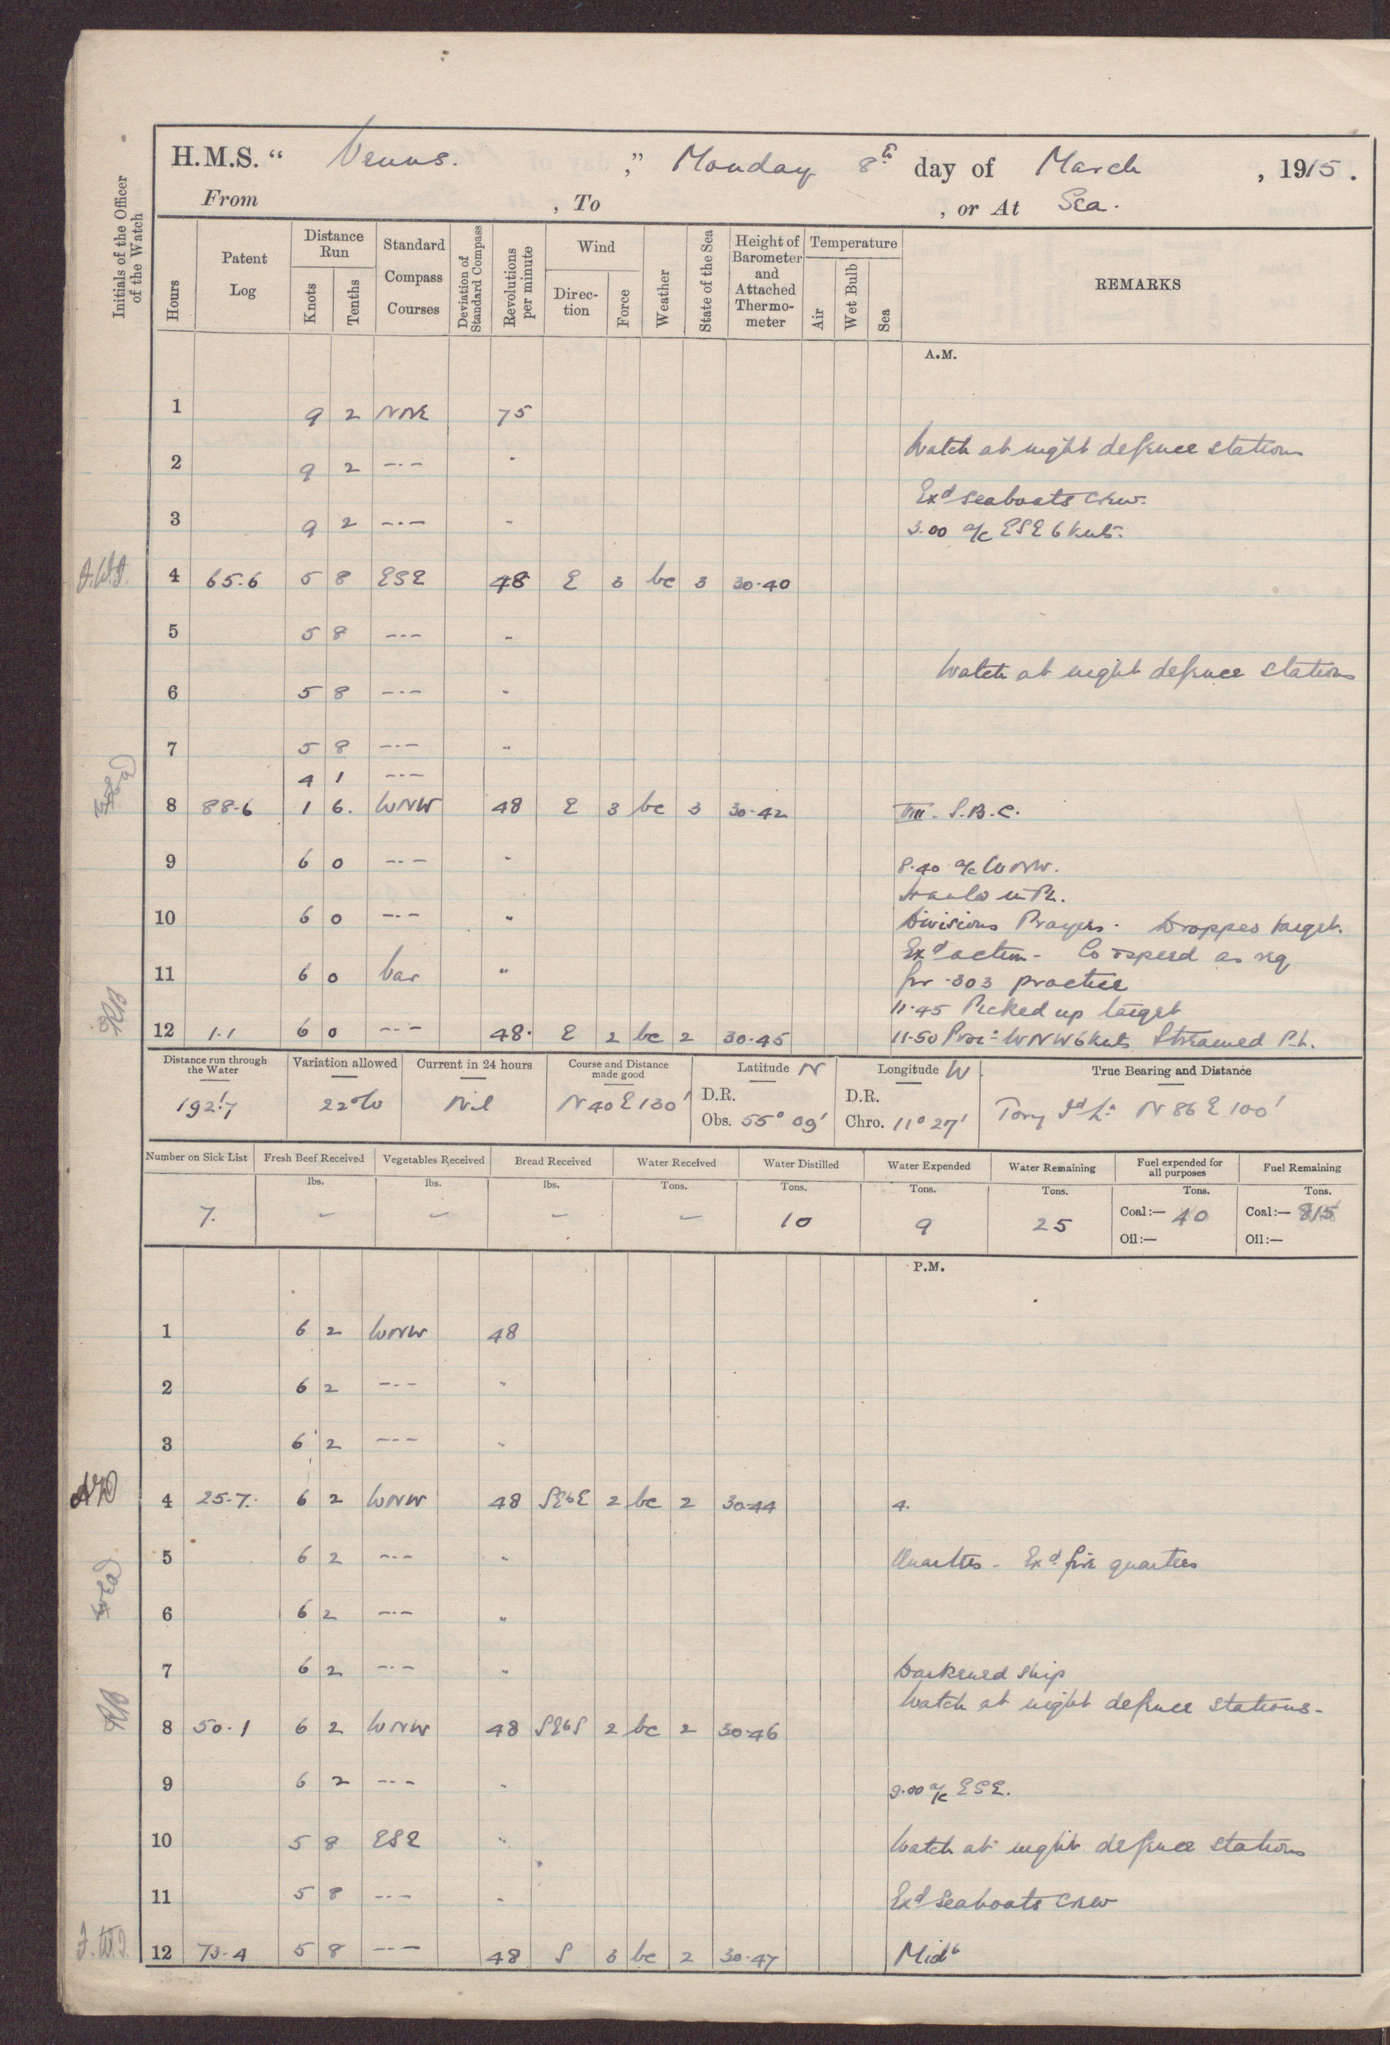 H.M.S. " Venus. " Monday 8th day of March, 1915.
From , To , or At Sea.
Initials of the Officer of the Watch
Hours
Patent Log
Distance Run
Knots
Tenths
Standard Compass Courses
Deviation of Standard Compass
Revolutions per minute
Wind
Direc- tion
Force
Weather
State of the Sea
Height of Barometer and Attached Thermo- meter
Temperature
Air
Wet Bulb
Sea
REMARKS
A.M.
1 9 2 NNE 75
2 9 2 -.- " Watch at night defence stations
Exd seaboats crew.
3 9 2 -.- " 3.00 a/c ESE 6 knts.
4 65.6 5 8 ESE 48 E 3 bc 3 30.40
5 5 8 -.- "
6 5 8 -.- " Watch at night defence stations
7 5 8 -.- "
4 1 -.-
8 88.6 1 6. WNW 48 E 3 bc 3 30.42 VIII. S.B.C.
9 6 0 -.- " 8.40 a/c WNW.
10 6 0 -.- " Divisions Prayers. Dropped target.
Exd action - Co & speed as req
11 6 0 Var " for .303 practice
11.45 Picked up target
RB 12 1.1 6 0 -.- 48. E 2 bc 2 30.45 11.50 Proc: WNW 6 knts Streamed P.L.
Distance run through the Water
Variation allowed
Current in 24 hours
Course and Distance made good
Latitude N
Longitude W
True Bearing and Distance
192.7 22°W Nil N 40 E 130'
D.R.
Obs. 55° 09'
D.R.
Chro. 11° 27'
Tory Id Lt N 86 E 100'
Number on Sick List
Fresh Beef Received
Vegetables Received
Bread Received
Water Received
Water Distilled
Water Expended
Water Remaining
Fuel expended for all purposes
Fuel Remaining
lbs. lbs. lbs. Tons. Tons. Tons. Tons. Tons. Tons.
7. - - - - 10 9 25 Coal:— 40 Coal:— 815
Oil:— Oil:—
P.M.
1 6 2 WNW 48
2 6 2 -.- "
3 6 2 -.- "
4 25.7. 6 2 WNW 48 SEbE 2 bc 2 30.44 4.
5 6 2 -.- " Quarters - Exd fire quarters
6 6 2 -.- "
7 6 2 -.- " Darkened ship
Watch at night defence stations -
RB 8 50.1 6 2 WNW 48 SEbS 2 bc 2 30.46
9 6 2 -.- " 9.00 a/c ESE.
10 5 8 ESE " Watch at night defence stations
11 5 8 -.- " Exd Seaboats crew
12 73.4 5 8 -.- 48 S 3 bc 2 30.47 Midt